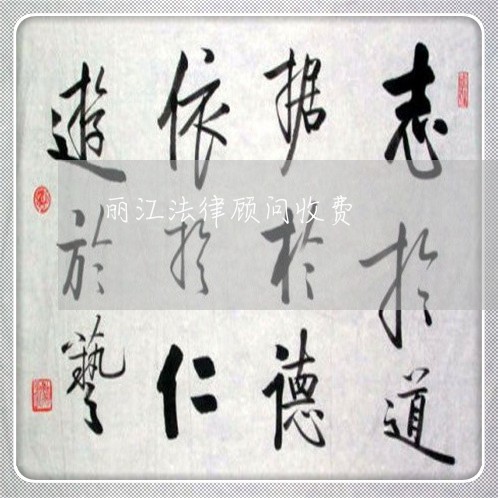 志於道
据於德
依於仁
遊於藝
丽江法律顾问收费